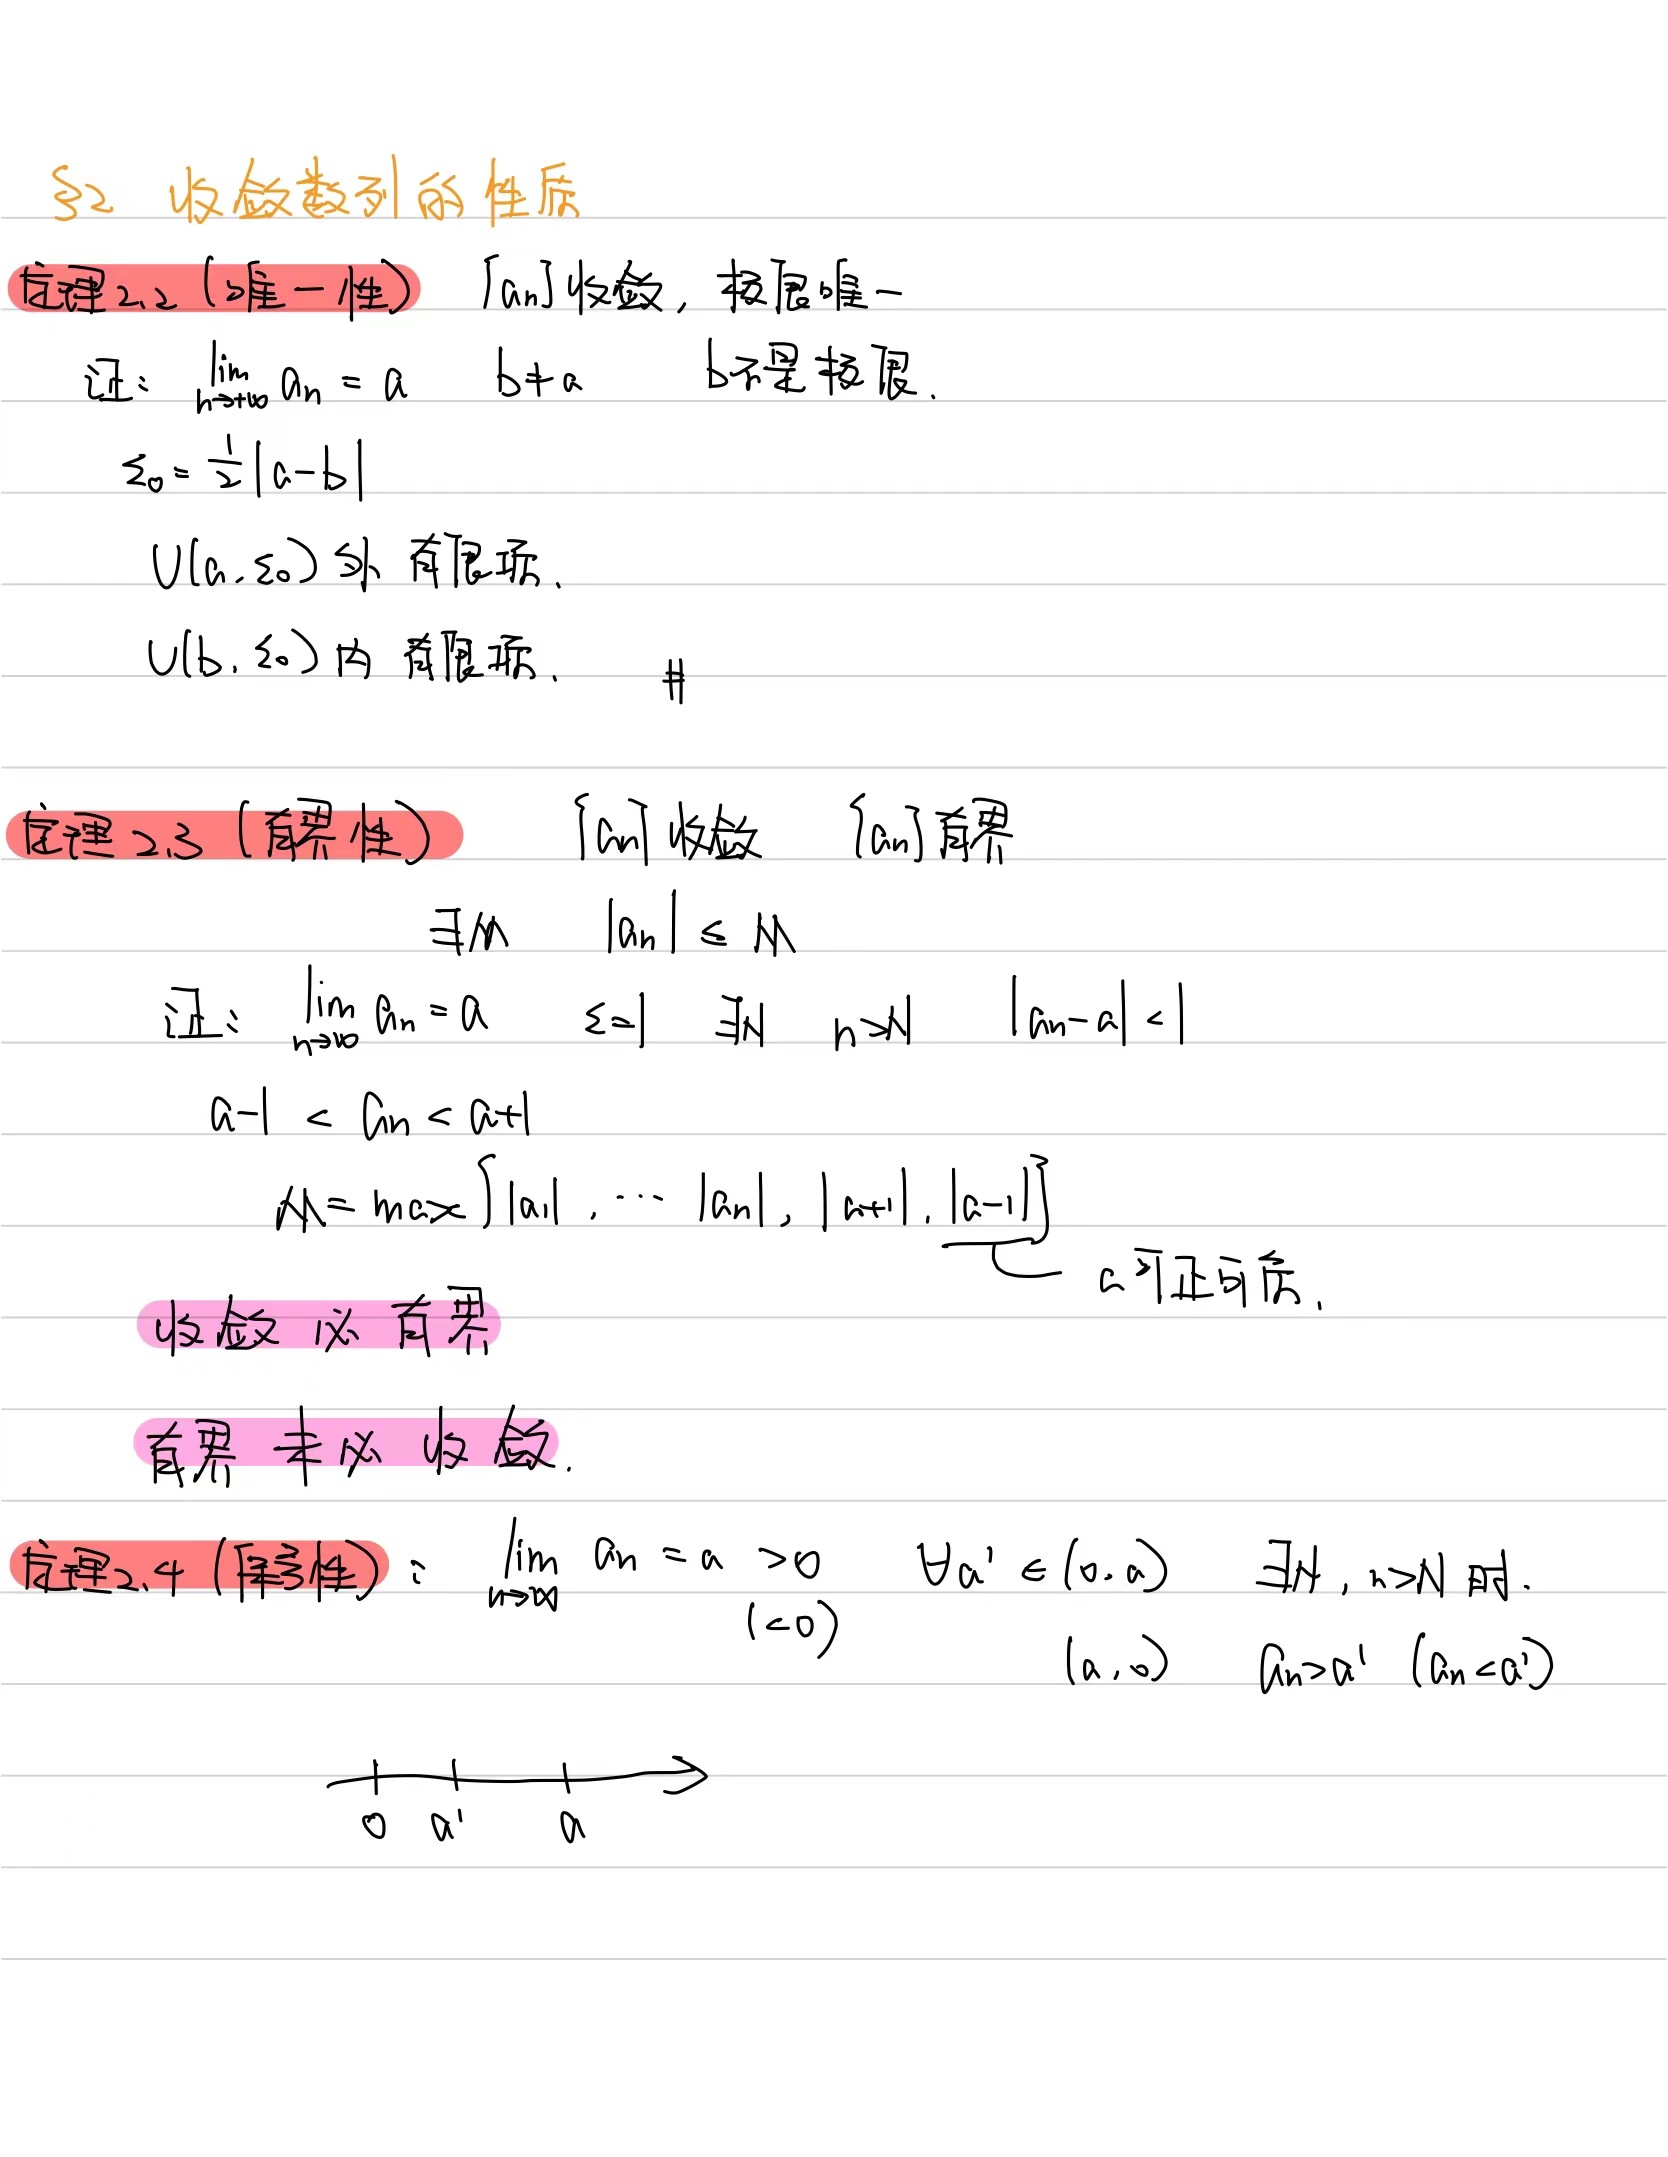 §2 收敛数列的性质
定理2.2 (唯一性) {an}收敛, 极限唯一
证: lim n→+∞ an = a b≠a b不是极限.
ε0 = 1/2 |a-b|
U(a, ε0) 外 有限项.
U(b, ε0) 内 有限项. #
定理2.3 (有界性) {an}收敛 {an}有界
∃M |an| ≤ M
证: lim n→∞ an = a ε=1 ∃N n>N |an-a| < 1
a-1 < an < a+1
M = max{|a1|, … |an|, |a+1|, |a-1|}
a可正可负.
收敛 必 有界
有界 未必 收敛.
定理2.4 (保号性): lim n→∞ an = a >0 ∀a' ∈ (0, a) ∃N, n>N 时.
(<0) (a, 0) an>a' (an<a')
0 a' a